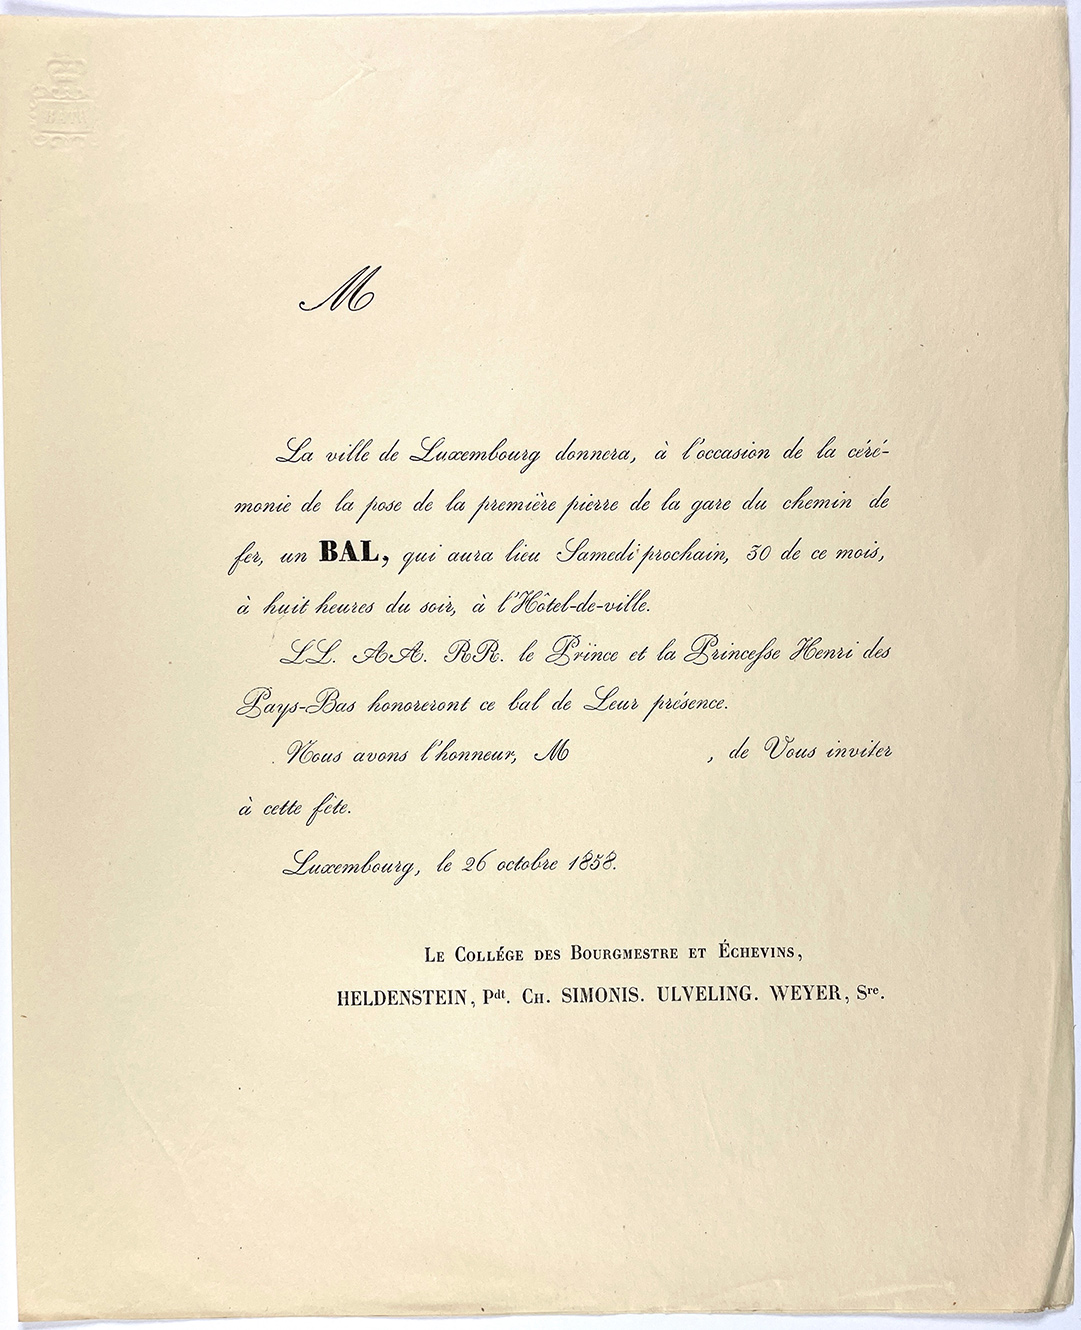 BATH
M
La ville de Luxembourg donnera, à l'occasion de la céré-
monie de la pose de la première pierre de la gare du chemin de
fer, un BAL, qui aura lieu Samedi prochain, 30 de ce mois,
à huit heures du soir, à l'Hôtel-de-ville.
LL. AA. RR. le Prince et la Princesse Henri des
Pays-Bas honoreront ce bal de Leur présence.
Nous avons l'honneur, M , de Vous inviter
à cette fête.
Luxembourg, le 26 octobre 1858.
Le Collége des Bourgmestre et Échevins,
HELDENSTEIN, Pdt. Ch. SIMONIS. ULVELING. WEYER, Sre.